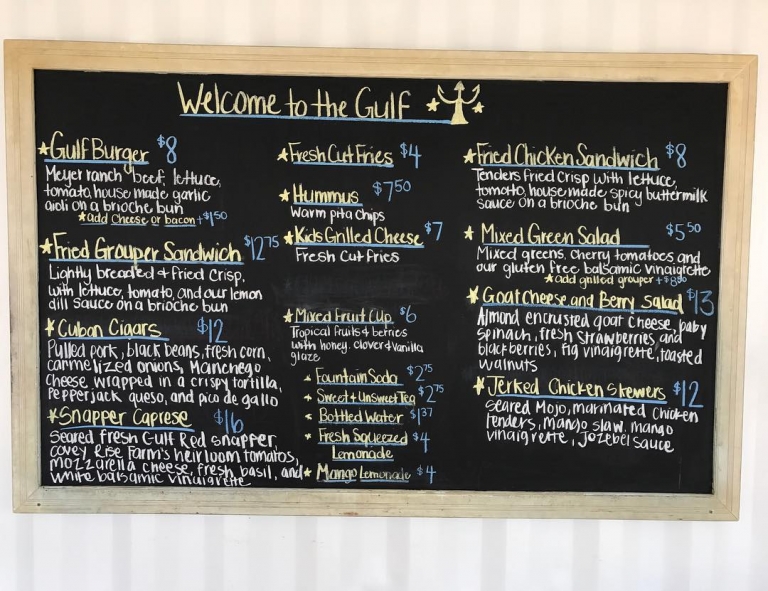 Welcome to the Gulf
Gulf Burger $8
Meyer ranch beef, lettuce,
tomato, house made garlic
aioli on a brioche bun
add Cheese or bacon +$1.50
Fried Grouper Sandwich $12.75
Lightly breaded + fried crisp,
with lettuce, tomato, and our lemon
dill sauce on a brioche bun
Cuban Cigars $12
Pulled pork, black beans, fresh corn,
carmelized onions, Manchego
cheese, wrapped in a crispy tortilla,
Pepperjack queso, and pico de gallo
Snapper Caprese $16
Seared fresh Gulf Red snapper,
covey Rise Farm's heirloom tomatos,
mozzarella cheese, fresh basil, and
white balsamic vinaigrette
Fresh Cut Fries $4
Hummus $7.50
Warm pita chips
Kids Grilled Cheese $7
Fresh Cut Fries
Mixed Fruit Cup $6
Tropical fruits + berries
with honey, clover + vanilla
glaze
Fountain Soda $2.75
Sweet + Unsweet Tea $2.75
Bottled Water $1.37
Fresh Squeezed $4
Lemonade
Mango Lemonade $4
Fried Chicken Sandwich $8
Tenders fried crisp with lettuce,
tomato, house made spicy buttermilk
sauce on a brioche bun
Mixed Green Salad $5.50
Mixed greens, cherry tomatoes and
our gluten free balsamic vinaigrette
add grilled grouper +$
Goat Cheese and Berry Salad $13
Almond encrusted goat cheese, baby
spinach, fresh strawberries, and
blackberries, fig vinaigrette, toasted
walnuts
Jerked Chicken Skewers $12
Seared Mojo, marinated chicken
tenders, mango slaw, mango
vinaigrette, Jozebel sauce